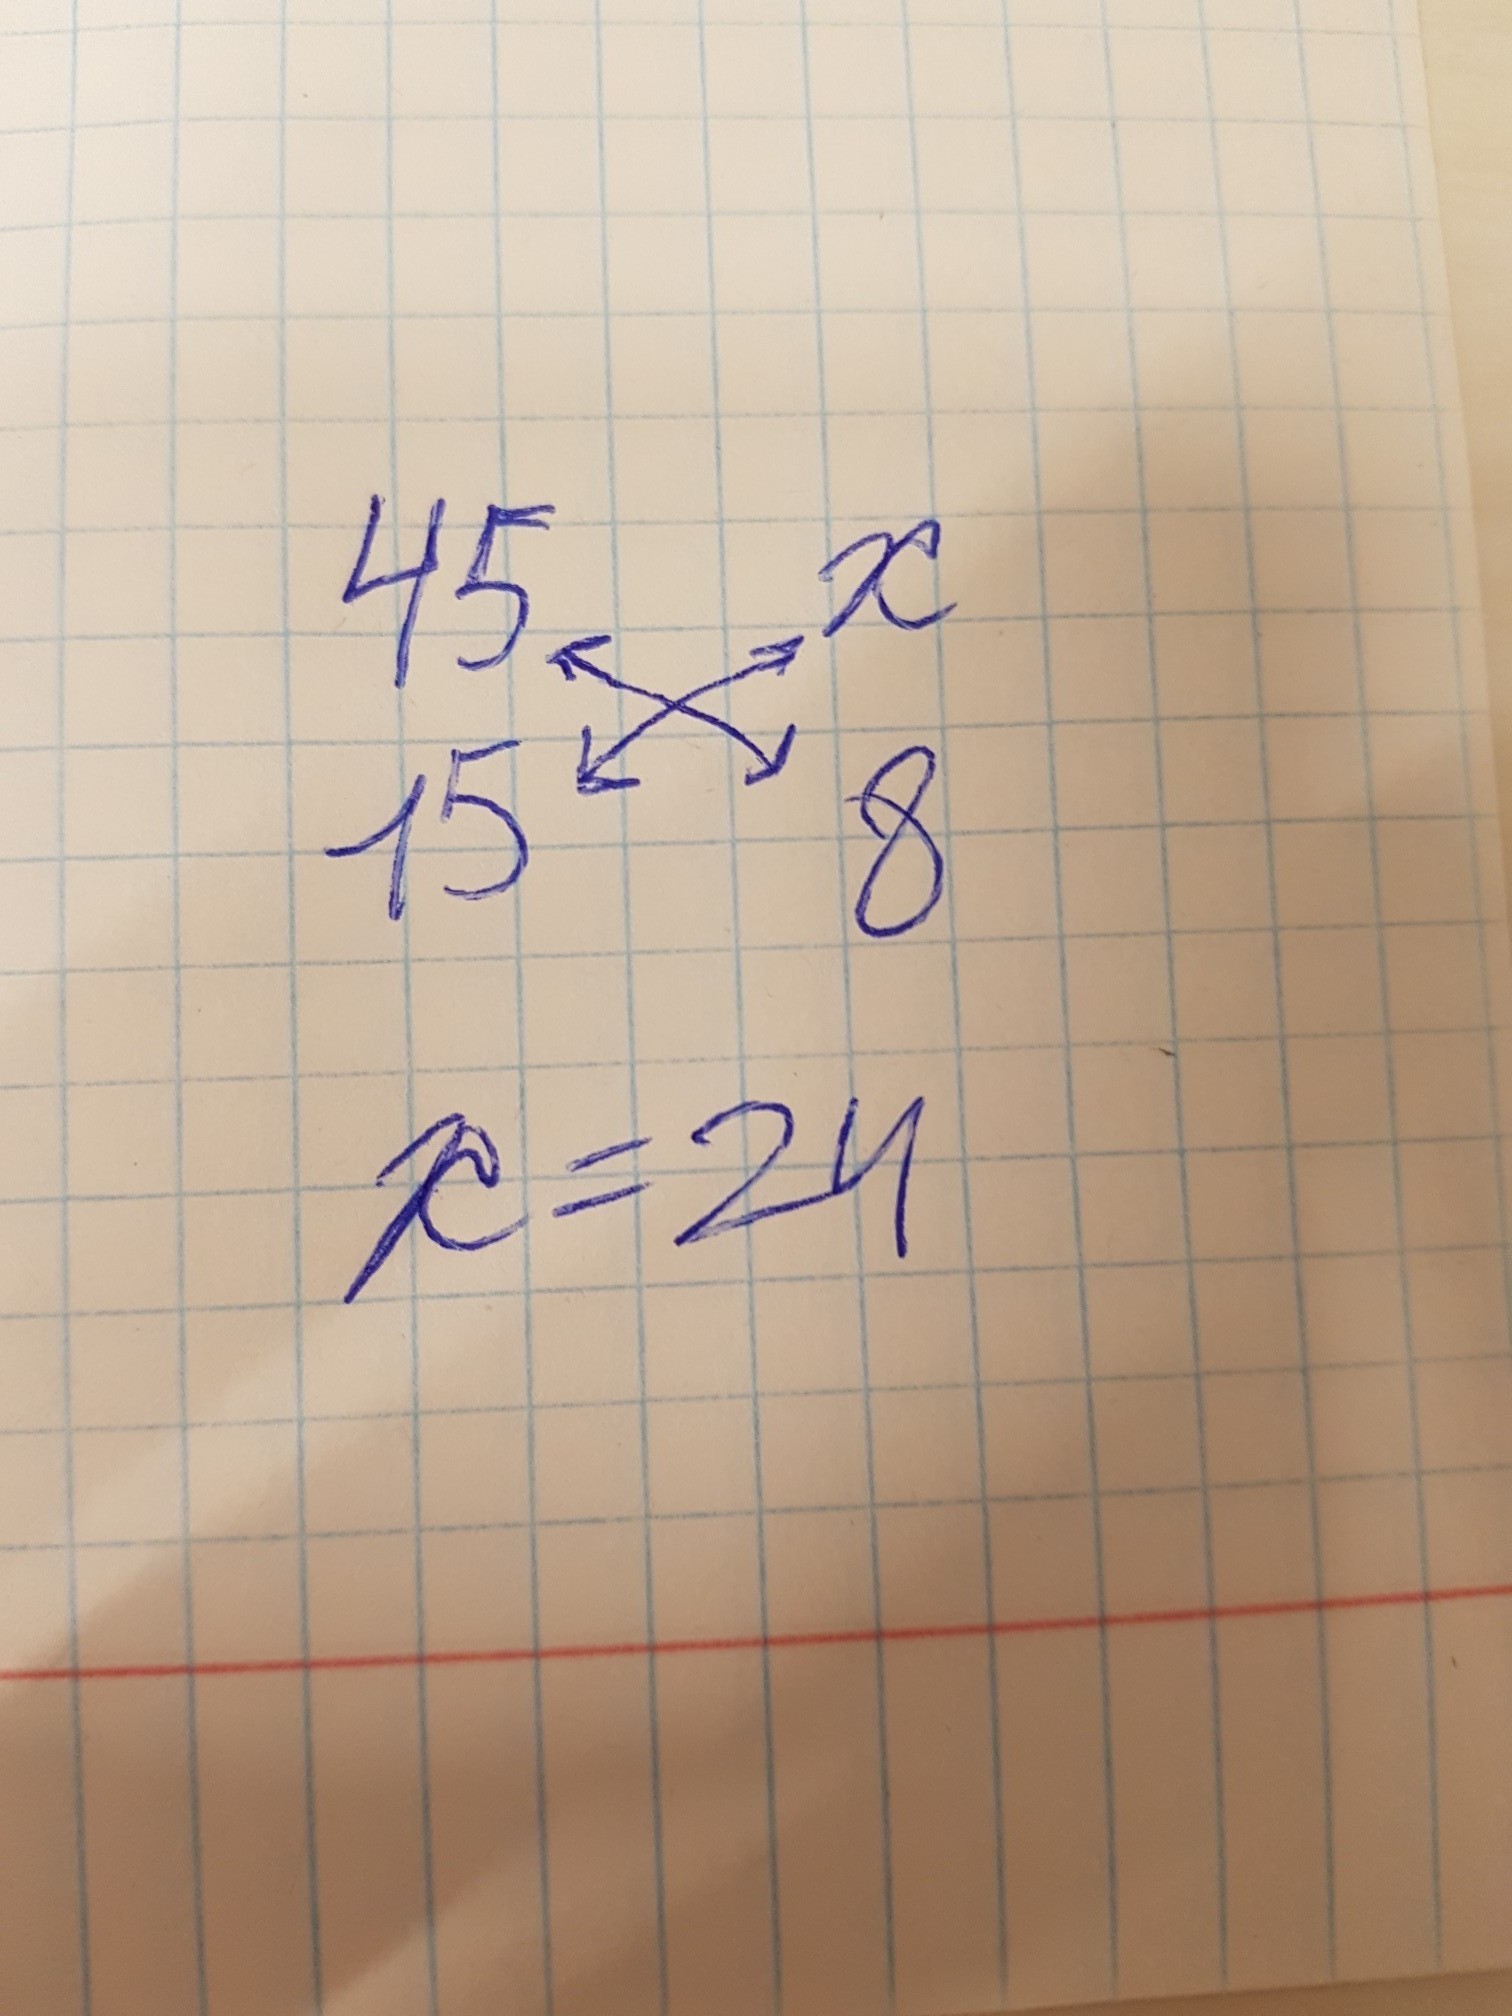 45 x
15 8
x = 24